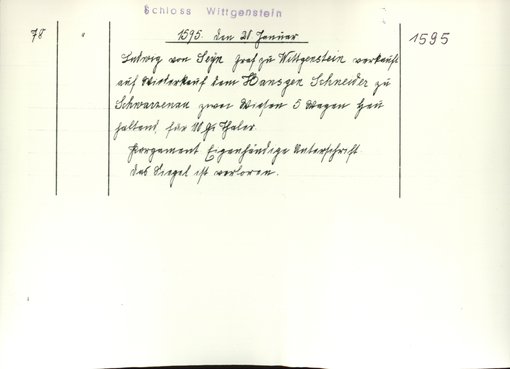 Schloss Wittgenstein
78 " 1595 den 21 Januar 1595
Ludwig von Seyn Graf zu Wittgenstein verkauft
auf Wiederkauf dem Hansgen Schneider zu
Schwarzenau zwei Wiesen 5 Wagen Heu
haltend, für Thaler.
Pergament Eigenhändige Unterschrift
das Siegel ist verloren.